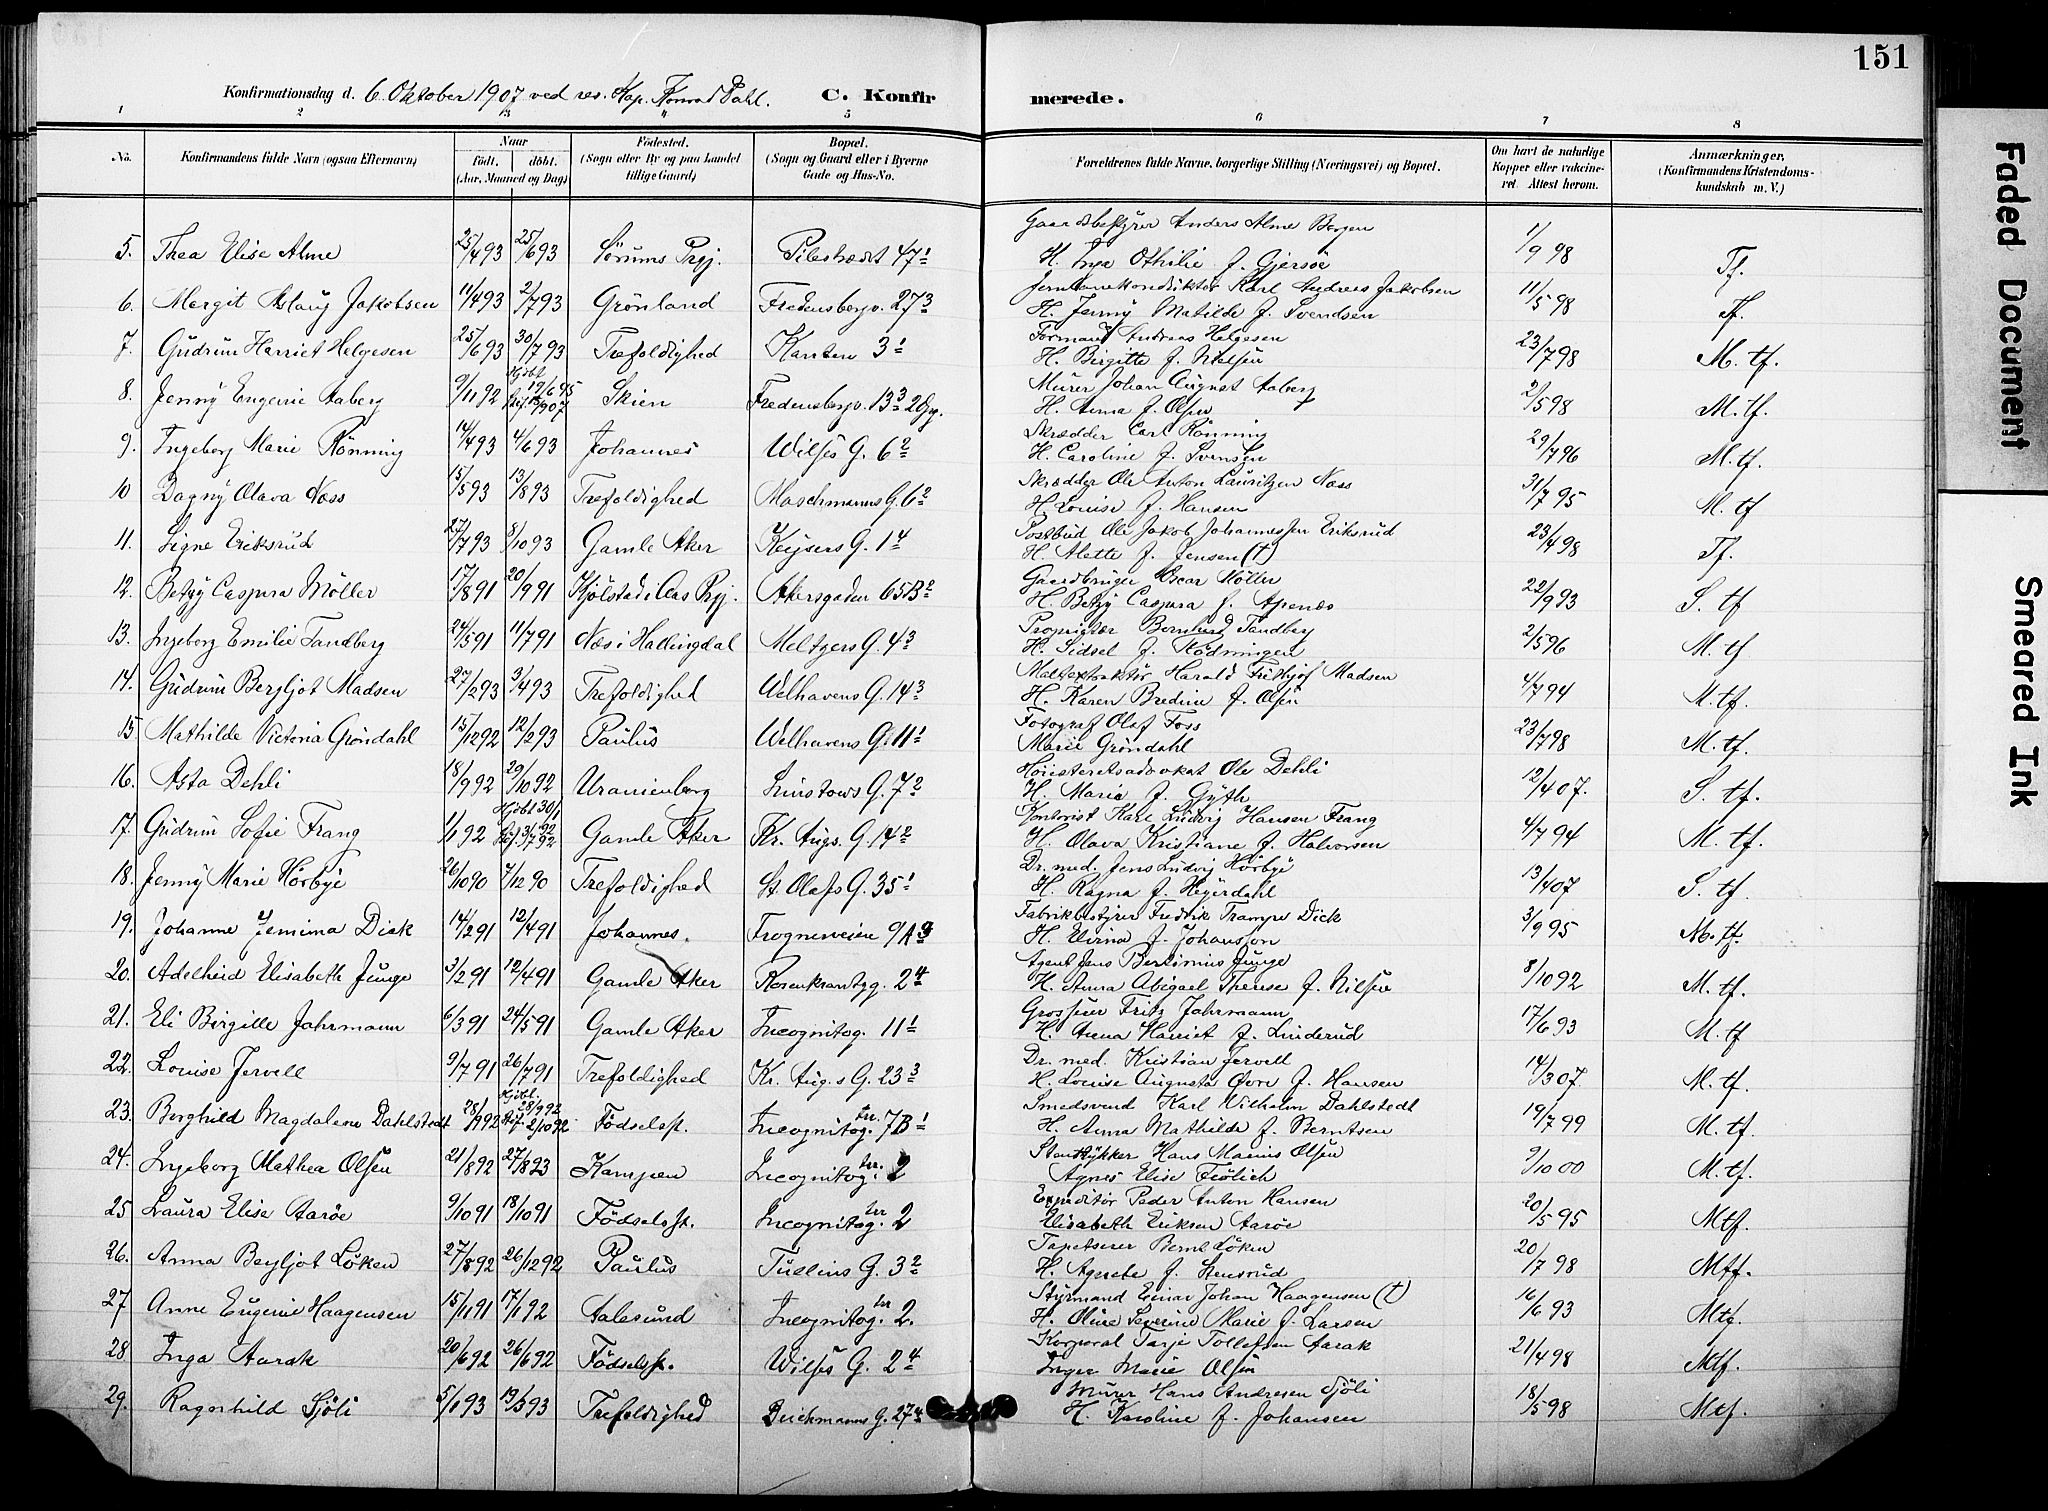 151
Konfirmationsdag d. 6. Oktober 1907 ved res. Kap. Konrad Dahl. C. Konfirmerede.
1 2 3 4 5 6 7 8
No. Konfirmandens fulde Navn (ogsaa Efternavn) Naar født, døbt. (Aar, Maaned og Dag) Fødested. (Sogn eller By og paa Landet tillige Gaard) Bopæl. (Sogn og Gaard eller i Byerne Gade og Hus-No. Forældrenes fulde Navne, borgerlige Stilling (Næringsvei) og Bopæl. Om havt de naturlige Kopper eller vakcineret. Attest herom. Anmærkninger, (Konfirmandens Kristendomskundskab m. V.)
5. Thea Elise Alme 25/4 93 25/6 93 Sørums Prgj. Pilestrædet 47 1 Gaardsbestyrer Anders Alme Bergen 1/9 98 Tf.
H. Inga Othilie f. Gjersøe
6. Margit Aslaug Jakobsen 11/4 93 2/7 93 Grønland Fredensborgv. 27 3 Jernbanekonduktør Karl Andreas Jakobsen 11/5 98 Tf.
H. Jenny Matilde f. Svendsen
7. Gudrun Harriet Helgesen 25/6 93 30/7 93 Trefoldighed Kanten 3 1 Formand Andreas Helgesen 23/7 98 M. tf.
H. Birgitte f. Nielsen
8. Jenny Eugenie Aaberg 9/11 92 Hjdbt. 19/6 95 Skien Fredensborgv. 13 3 2 Opg. Murer Johan August Aaberg 2/5 98 M. tf.
H. Anna f. Olsen
9. Ingeborg Marie Rønning 14/4 93 4/6 93 Johannes Wilses G. 6 2 Skrædder Carl Rønning 29/7 96 M. tf.
H. Caroline f. Svensen
10 Dagny Olava Næss 15/5 93 13/8 93 Trefoldighed Maschmanns G. 6 2 Skrædder Ole Anton Lauritzen Næss 31/7 95 M. tf
H. Louise f. Hansen
11. Signe Eriksrud 27/7 93 8/10 93 Gamle Aker Keysers G. 1 4 Postbud Ole Jakob Johannessen Eriksrud 23/4 98 Tf.
H. Alette f. Jensen (†)
12. Betzy Caspara Møller 17/8 91 20/9 91 Kjølstad i Aas Prgj. Akersgaden 65 B 2 Gaardbruger Oscar Møller 22/9 93 S. tf
H. Betzy Caspara f. Apenæs
13. Ingeborg Emilie Tandberg 24/5 91 11/7 91 Næs i Hallingdal Meltzers G. 4 3 Proprietær Bernhard Tandberg 2/5 96 M. tf
H. Sidsel f. Rødningen
14. Gudrun Bergljot Madsen 27/2 93 3/4 93 Trefoldighed Welhavens G. 14 3 Harald Frithjof Madsen 4/7 94 M. tf.
H. Karen Bredine f. Olsen
15 Mathilde Victoria Grøndahl 15/12 92 12/2 93 Paulus Welhavens G. 11 1 Fotograf Olaf Foss 23/7 98 M. tf.
Marie Grøndahl
16. Asta Dehli 18/9 92 29/10 92 Uranienborg Linstows G. 7 2 Høiesteretsadvokat Ole Dehli 12/4 07. S. tf.
H. Marie f. Gyth
17. Gudrun Sofie Frang 1/1 92 Hjdbt 30/1 92 3/7 92 Gamle Aker Kr. Augs. G. 14 2 Kontorist Karl Ludvig Hansen Frang 4/7 94 M. tf.
H. Olava Kristiane f. Halvorsen
18. Jenny Marie Hørbye 26/10 90 7/12 90 Trefoldighed St. Olafs G. 35 1 Dr. med. Jens Ludvig Hørbye 13/4 07 S. tf
H. Ragna f. Heyerdahl
19. Johanne Jemima Dick 14/2 91 12/4 91 Johannes. Frogneveien 9 A 3 Fabrikbestyrer Fredrik Trampe Dick 3/9 95 M. tf.
H. Elvina f. Johansson
20. Adelheid Elisabeth Junge 3/2 91 12/4 91 Gamle Aker Rosenkrantzg. 2 4 Agent Jens Junge 8/10 92 M. tf.
H. Anna Abigael Therese f. Nilsen
21. Eli Birgitte Jahrmann 6/3 91 24/5 91 Gamle Aker Incognitog. 11 1 Grosserer Fritz Jahrmann 17/6 93 M. tf
H. Anna Harriet f. Linderud
22. Louise Jervell 9/7 91 26/7 91 Trefoldighed Kr. Aug.s G. 23 3 Dr. med. Kristian Jervell 14/3 07. M. tf.
H. Louise Augusta Øvre f. Hansen
23. Borghild Magdalene Dahlstedt 28/1 92 Hjdbt. 28/9 92 2/10 92 Fødselsst. Incognitog. tr. 7 B 1 Smedsvend Karl Vilhelm Dahlstedt 19/7 99 M. tf.
H. Anna Mathilde f. Berntsen
24. Ingeborg Mathea Olsen 21/8 92 27/8 93 Kampen Incognitog. tr. 2 Hans Marius Olsen 9/10 00 M. tf.
Agnes Elise Frølich
25 Laura Elise Aarøe 9/10 91 18/10 91 Fødselsst. Incognitog. tr 2 Expeditør Peder Anton Hansen 20/5 95 Mtf.
Elisabeth Eriksen Aarøe
26. Anna Bergljot Løken 27/8 92 26/12 92 Paulus Tullins G. 3 2 Tapetserer Bernt Løken 20/7 98 Mtf.
H. Agnethe f. Lensrud
27 Anne Eugenie Haagensen 15/11 91 17/1 92 Aalesund Incognitog. tr 2. Styrmand Einar Johan Haagensen (†) 16/6 93 Mtf.
H. Oline Severine Marie f. Larsen
28 Inga Aarak 20/6 92 26/6 92 Fødselsst. Wilses G. 2 4 Korporal Tarje Tollefsen Aarak 21/4 98 Mtf.
Inger Marie Olsen
29. Ragnhild Sjøli 5/1 93 19/3 93 Trefoldighed Deichmanns G. 27 4 Murer Hans Andresen Sjøli 18/5 98 Mtf.
H. Karoline f. Johansen
Faded Document
Smeared Ink